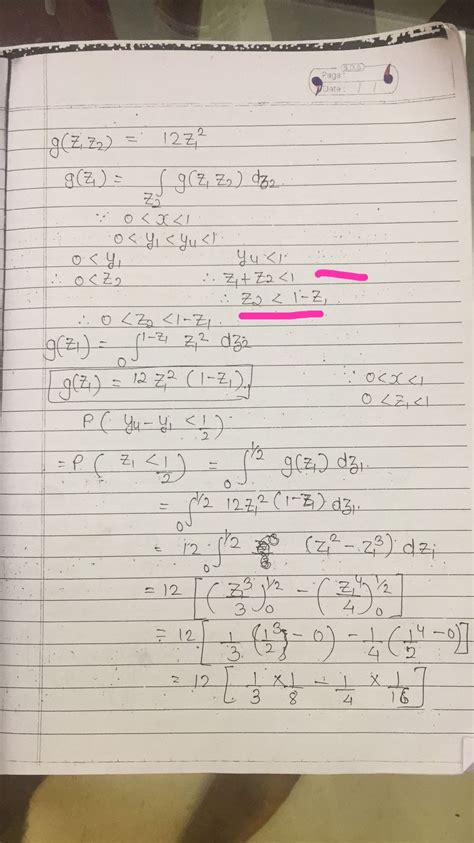 Page :
Date : / /
g(z₁ z₂) = 12z₁²
g(z₁) = ∫ g(z₁ z₂) dz₂
z₂
∵ 0 < x < 1
0 < y₁ < y₄ < 1
0 < y₁ y₄ < 1
∴ 0 < z₂ ∴ z₁ + z₂ < 1
∴ z₂ < 1 - z₁
∴ 0 < z₂ < 1 - z₁
g(z₁) = ₀∫^(1-z₁) z₁² dz₂
g(z₁) = 12 z₁² (1 - z₁). ∵ 0 < x < 1
0 < z₁ < 1
P( y₄ - y₁ < 1/2 )
= P( z₁ < 1/2 ) = ₀∫^(1/2) g(z₁) dz₁
= ₀∫^(1/2) 12z₁² (1 - z₁) dz₁
= 12 ₀∫^(1/2) (z₁² - z₁³) dz₁
= 12 [ (z₁³/3)₀^(1/2) - (z₁⁴/4)₀^(1/2) ]
= 12 [ 1/3 (1/2³ - 0) - 1/4 (1/2⁴ - 0) ]
= 12 [ 1/3 × 1/8 - 1/4 × 1/16 ]